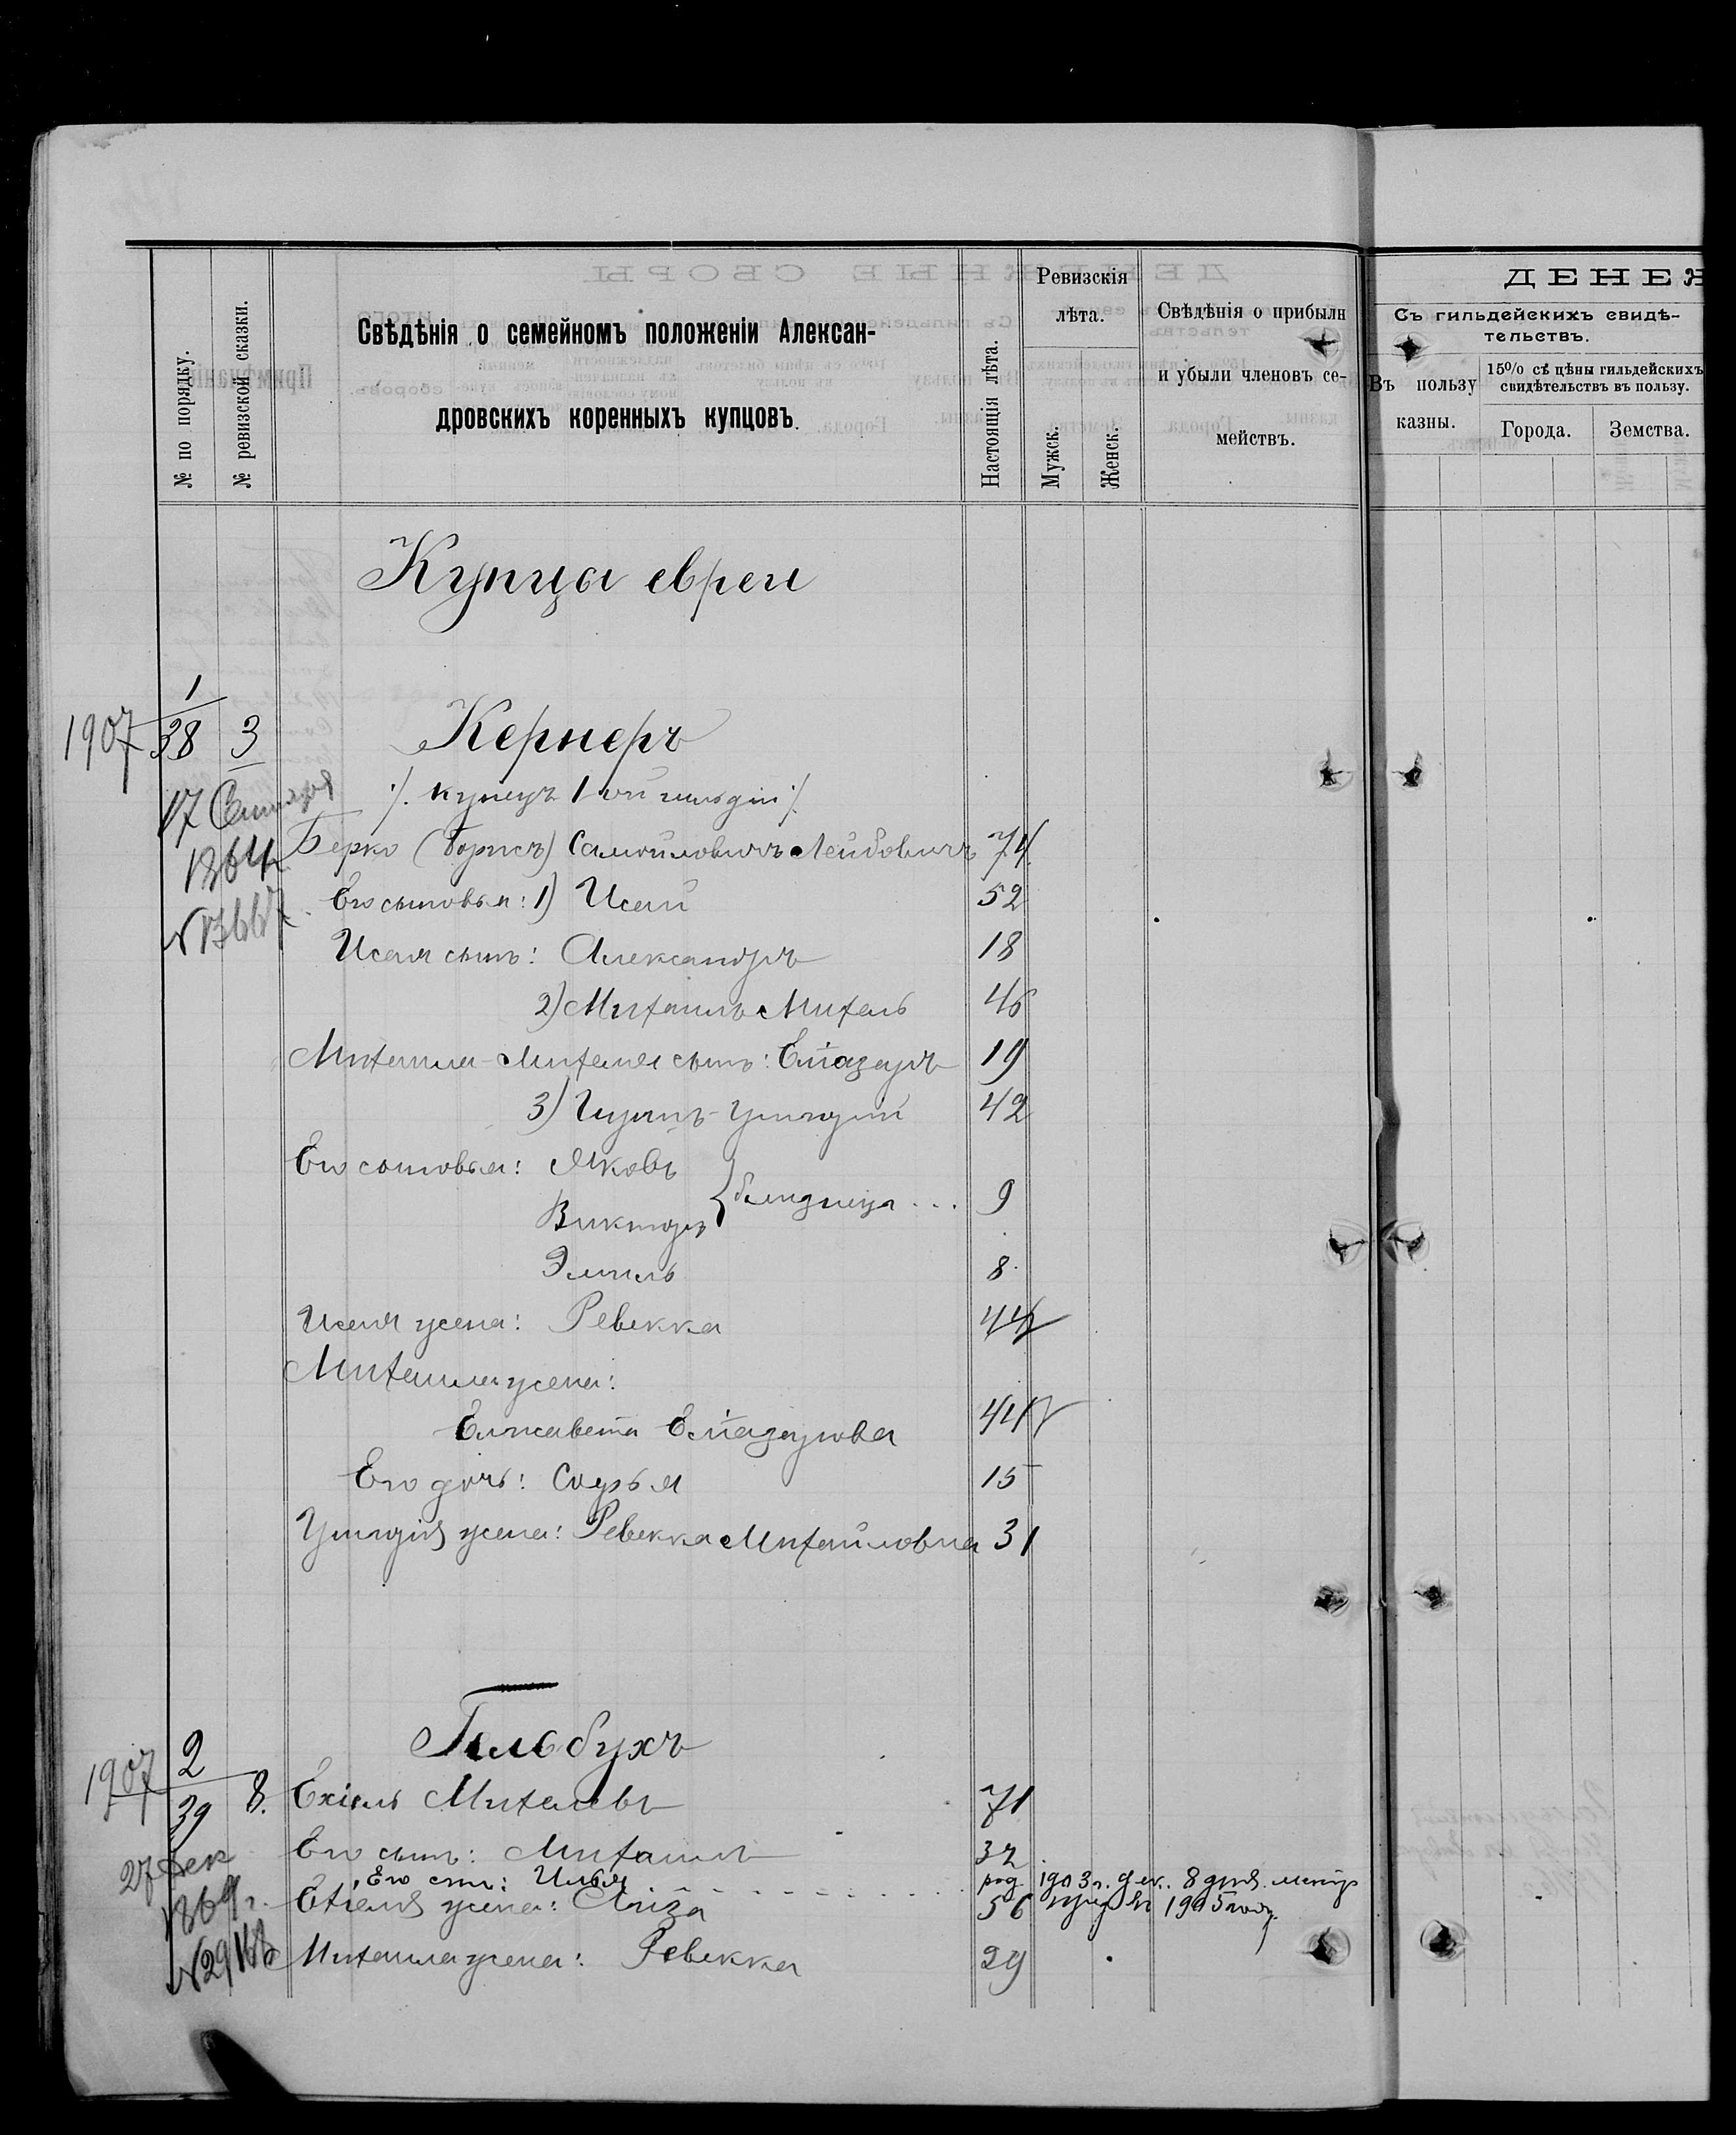 № по порядку.
№ ревизской сказки.
Свѣдѣнія о семейномъ положеніи Алексан-
дровскихъ коренныхъ купцовъ.
Настоящія лѣта.
Ревизскія
лѣта.
Мужск.
Женск.
Свѣдѣнія о прибыли
и убыли членовъ се-
мействъ.
ДЕНЕЖ
Съ гильдейскихъ свидѣ-
тельствъ.
Въ пользу
казны.
15% съ цѣны гильдейскихъ
свидѣтельствъ въ пользу.
Города.
Земства.
Купцы евреи
1
1907 38 3 Кернеръ
17 Сентября
1864
/. купецъ 1-ой гильдіи /.
Берко (Борисъ) Самойловичъ Лейбовичъ 74
Его сыновья: 1) Исай 52
Исая сынъ: Александръ 18
2) Михаилъ Михель 46
Михаила-Михеля сынъ: Еліазаръ 19
3) Григорій 42
Его сыновья: Яковъ
Викторъ { близнецы ... 9
Эмиль 8
Исая жена: Ревекка 44
Михаила жена:
Елисавета Еліазарова 44
Его дочь: Софья 15
Григорія жена: Ревекка Михайловна 31
Гельбухъ
1907 2
39 8. Ехіель Михелевъ 71
27 Дек
1869 г.
Его сынъ: Михаилъ 32
Его сынъ: Илья род. 1903 г. дек. 8 дня.
Ехіеля жена: Лиза 56 1905 году.
Михаила жена: Ревекка 29